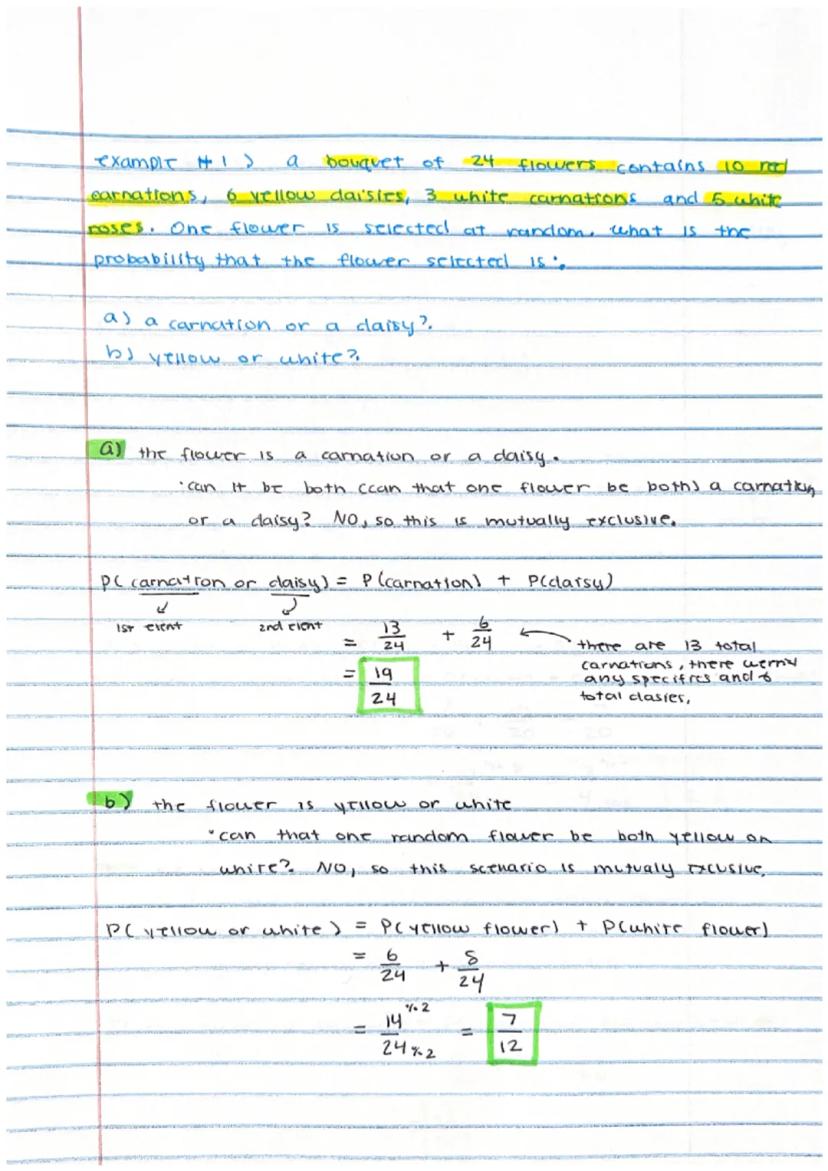 example #1) a bouquet of 24 flowers contains 10 red
carnations, 6 yellow daisies, 3 white carnations and 5 white
roses. One flower is selected at random. what is the
probability that the flower selected is:
a) a carnation or a daisy?
b) yellow or white?
a) the flower is a carnation or a daisy.
• can it be both (can that one flower be both) a carnation
or a daisy? NO, so this is mutually exclusive.
P( carnation or daisy) = P(carnation) + P(daisy)
1st event 2nd event
= 13/24 + 6/24
there are 13 total
carnations, there weren't
any specifics and 6
total daisies.
= 19/24
b) the flower is yellow or white
• can that one random flower be both yellow or
white? NO, so this scenario is mutualy exclusive.
P( yellow or white ) = P(yellow flower) + P(white flower)
= 6/24 + 8/24
= 14 ÷2 / 24 ÷2 = 7/12